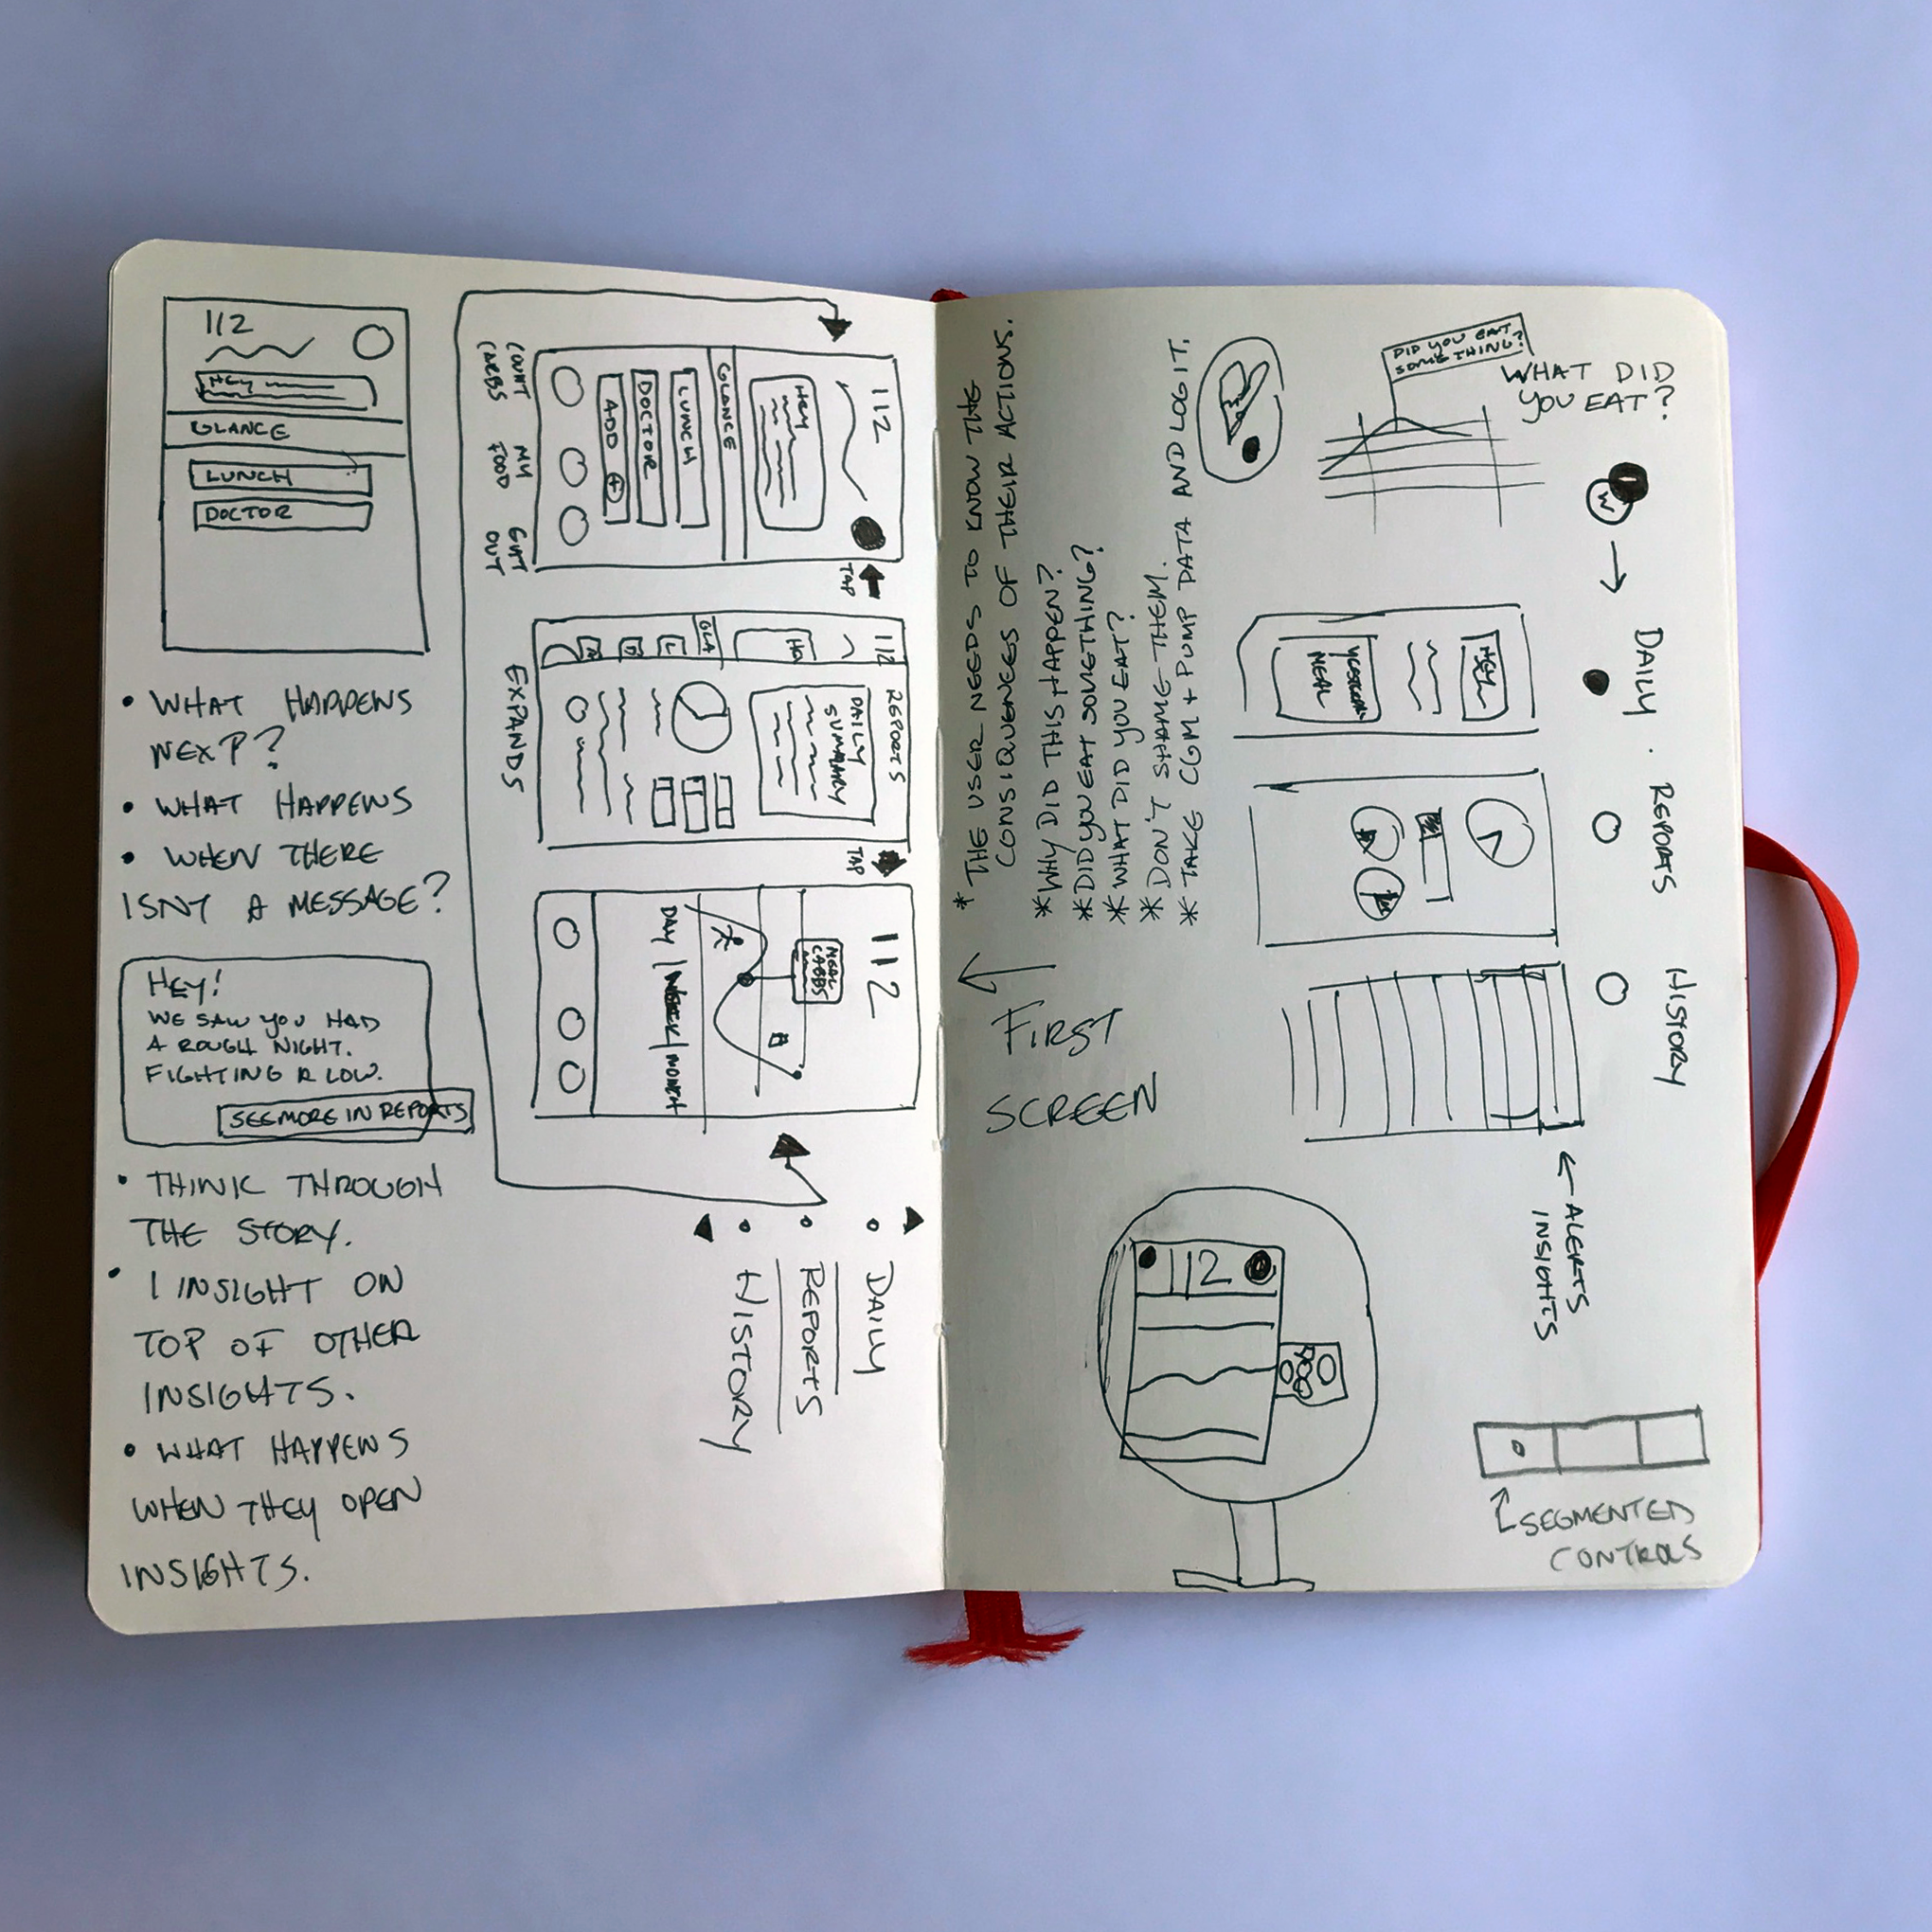 112
HEY
GLANCE
LUNCH
DOCTOR
• WHAT HAPPENS
NEXT?
• WHAT HAPPENS
• WHEN THERE
ISNT A MESSAGE?
HEY!
WE SAW YOU HAD
A ROUGH NIGHT.
FIGHTING A LOW.
SEE MORE IN REPORTS
• THINK THROUGH
THE STORY.
• 1 INSIGHT ON
TOP OF OTHER
INSIGHTS.
• WHAT HAPPENS
WHEN THEY OPEN
INSIGHTS.
112
HEY
GLANCE
LUNCH
DOCTOR
ADD +
COUNT
CARBS
MY
FOOD
GUT
OUT
TAP
112
HE
GLA
L
D
A
REPORTS
DAILY
SUMMARY
EXPANDS
TAP
112
MEAL
CARBS
DAY | WEEK | MONTH
• DAILY
• REPORTS
• HISTORY
* THE USER NEEDS TO KNOW THE
CONSIQUENCES OF THEIR ACTIONS.
* WHY DID THIS HAPPEN?
* DID YOU EAT SOMETHING?
* WHAT DID YOU EAT?
* DON'T SHAME THEM.
* TAKE CGM + PUMP DATA AND LOG IT.
FIRST
SCREEN
DID YOU EAT
SOMETHING?
WHAT DID
YOU EAT?
W
DAILY
REPORTS
HISTORY
HEY
MEAL
ALERTS
INSIGHTS
112
SEGMENTED
CONTROLS